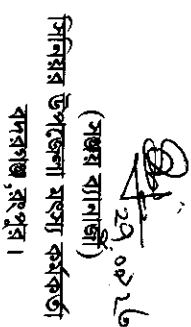 ২৭.০৩.২৬
(সঞ্জয় ব্যানার্জী)
সিনিয়র উপজেলা মৎস্য কর্মকর্তা
বদরগঞ্জ, রংপুর।